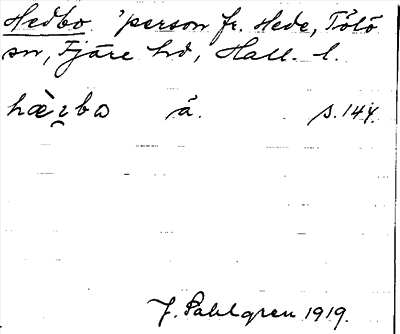 Hedbo 'person fr. Hede, Tölö
sn, Fjäre hd, Hall. l.
hæ̀ʐbɷ å. s. 144.
J. Sahlgren 1919.